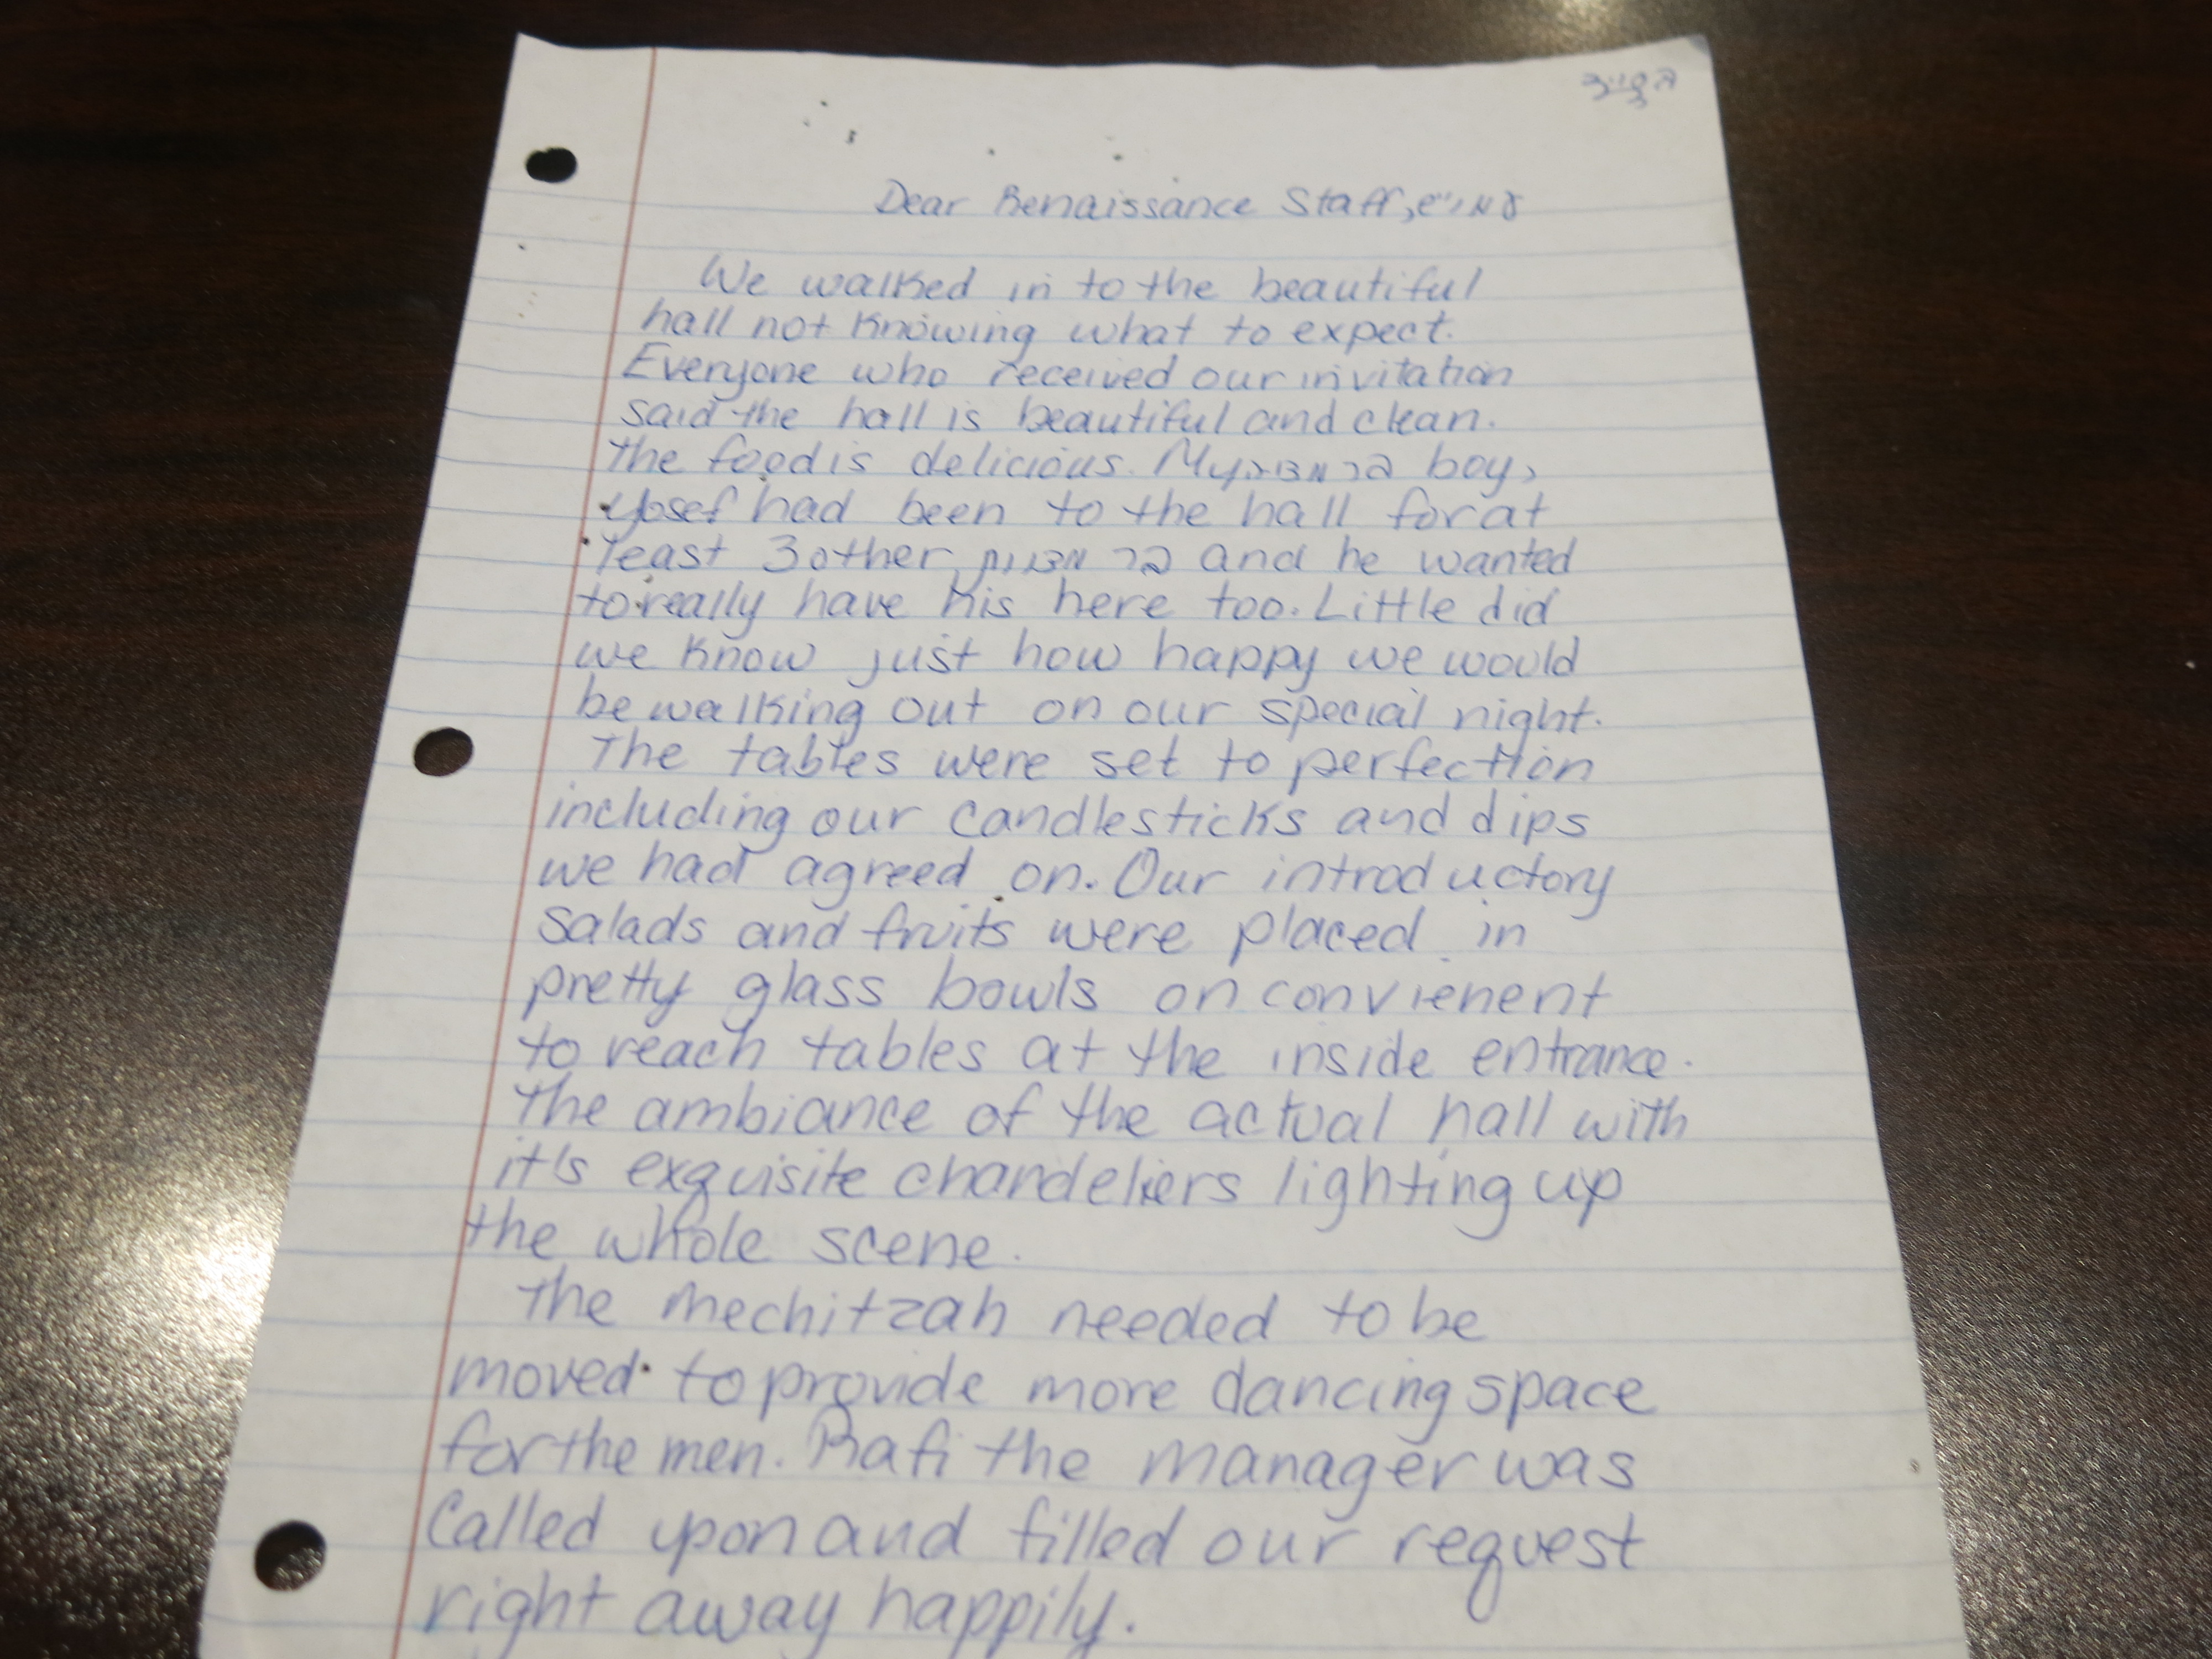 בס"ד
Dear Renaissance Staff, שי'
We walked in to the beautiful
hall not knowing what to expect.
Everyone who received our invitation
said the hall is beautiful and clean.
The food is delicious. My בר מצוה boy,
Yosef had been to the hall for at
least 3 other בר מצוות and he wanted
to really have his here too. Little did
we know just how happy we would
be walking out on our special night.
The tables were set to perfection
including our candlesticks and dips
we had agreed on. Our introductory
salads and fruits were placed in
pretty glass bowls on convienent
to reach tables at the inside entrance.
The ambiance of the actual hall with
it's exquisite chandeliers lighting up
the whole scene.
The Mechitzah needed to be
moved to provide more dancing space
for the men. Rafi the manager was
Called upon and filled our request
right away happily.